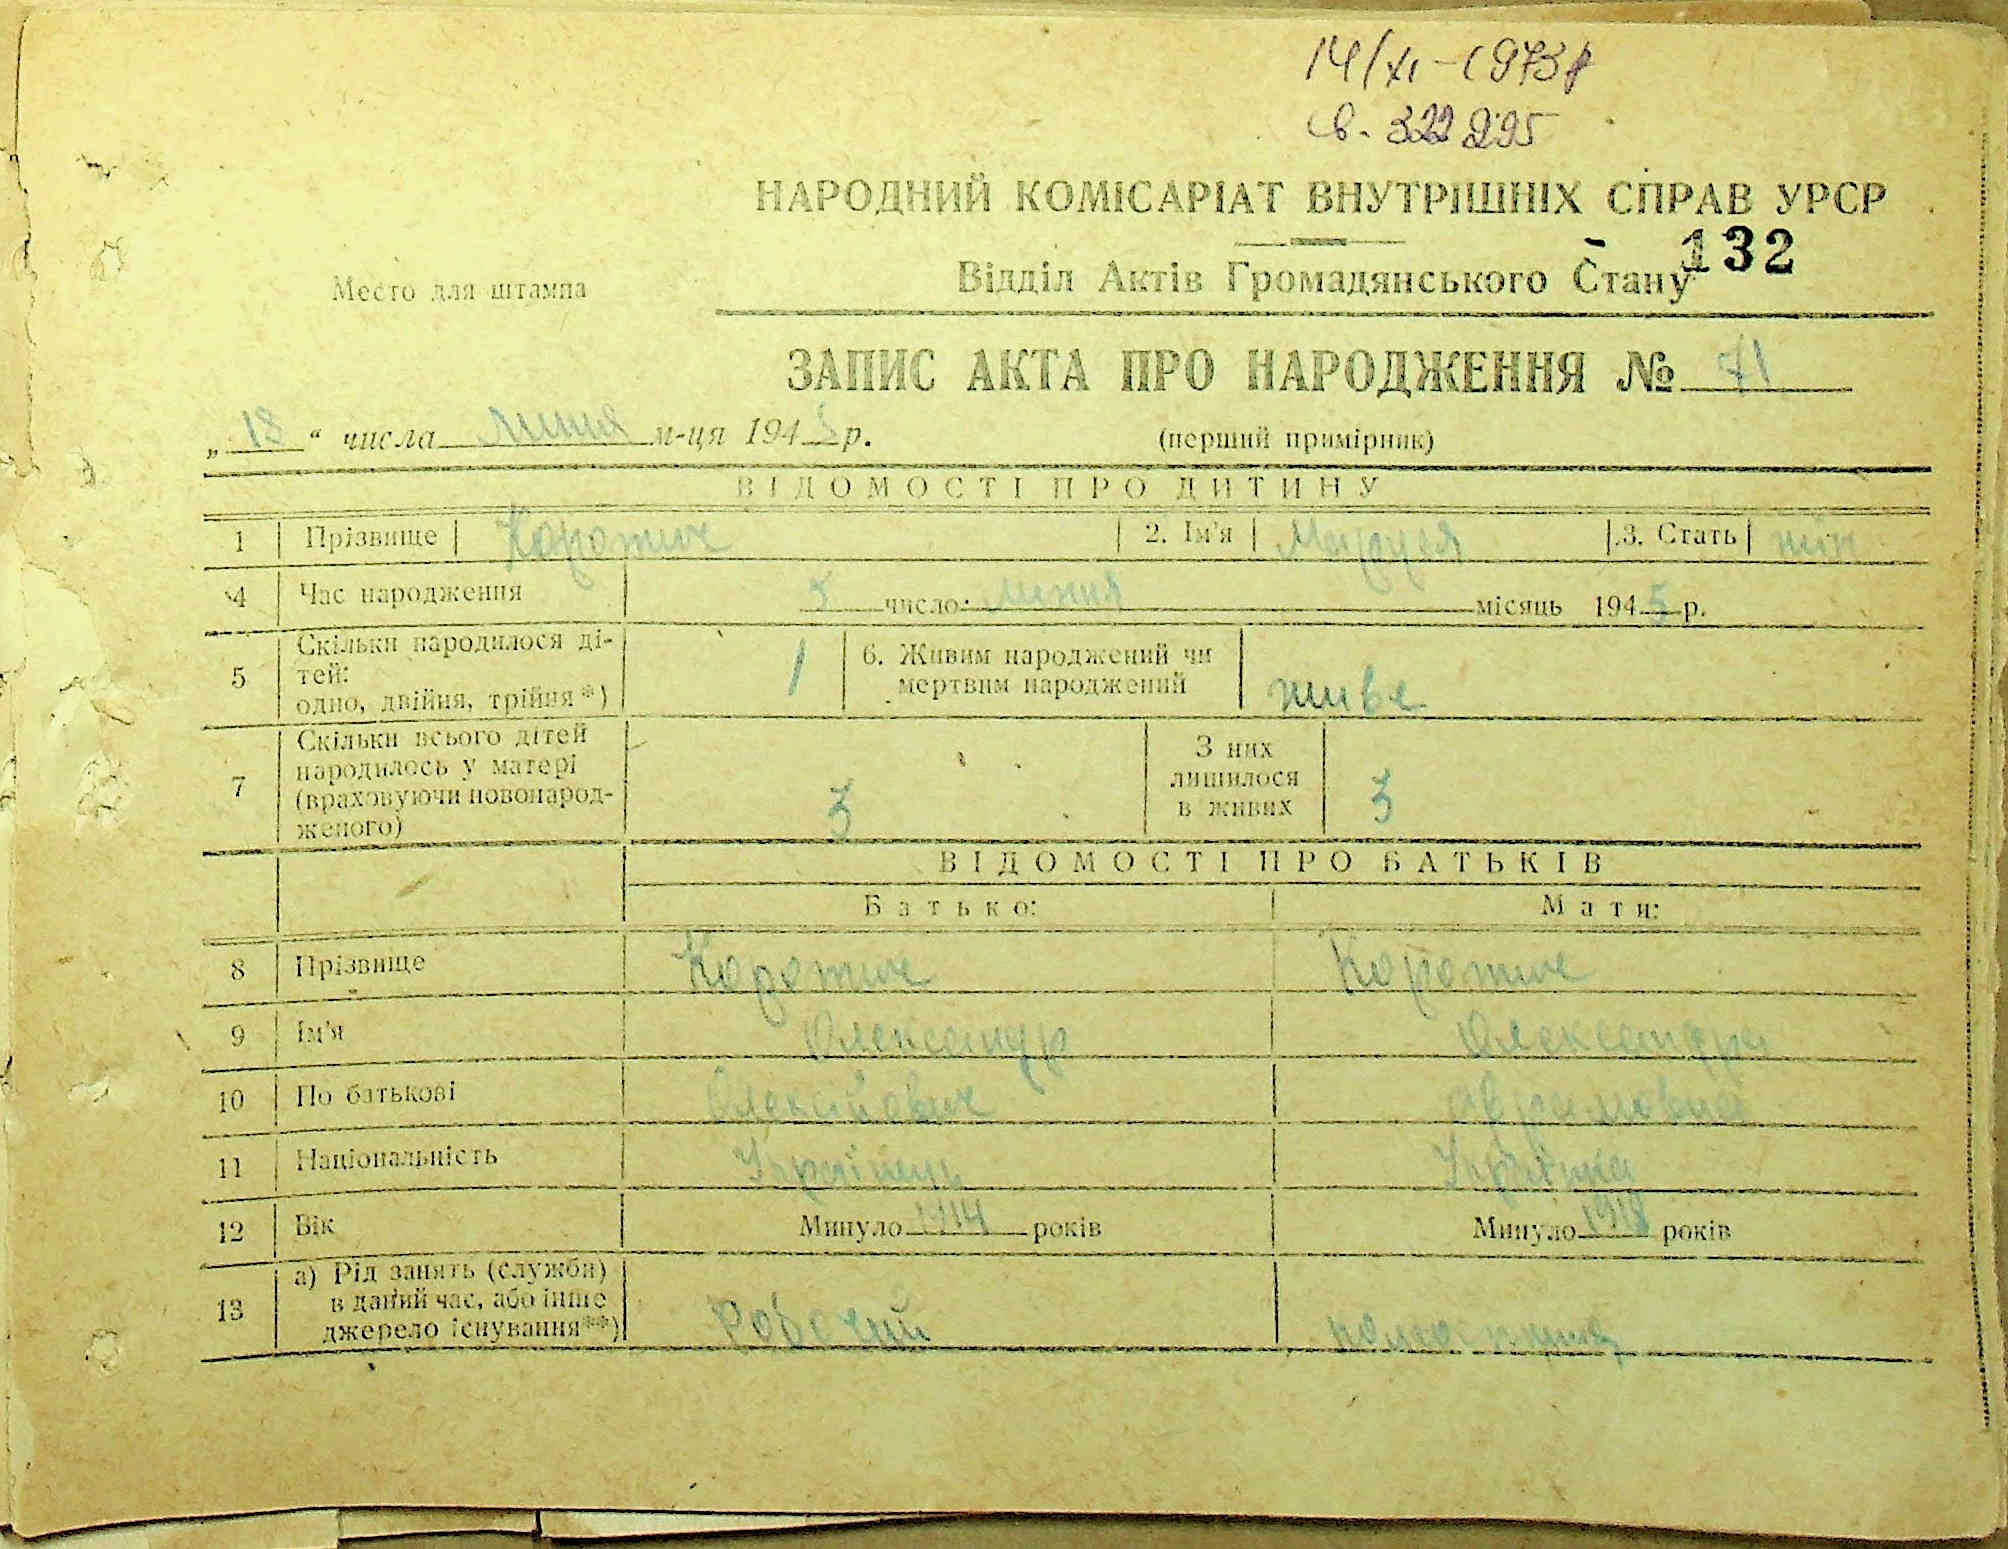 14/XI-1973р
св. 322295
НАРОДНИЙ КОМІСАРІАТ ВНУТРІШНІХ СПРАВ УРСР
132
Место для штампа
Відділ Актів Громадянського Стану
ЗАПИС АКТА ПРО НАРОДЖЕННЯ № 71
„18“ числа липня м-ця 1945 р. (перший примірник)
ВІДОМОСТІ ПРО ДИТИНУ
1 Прізвище Коротич 2. Ім'я Маруся 3. Стать жін
4 Час народження 5 число: липня місяць 1945 р.
5 Скільки народилося ді-
тей:
одно, двійня, трійня*) 1
6. Живим народжений чи
мертвим народжений живе
7 Скільки всього дітей
народилось у матері
(враховуючи новонарод-
женого) 3
З них
лишилося
в живих 3
ВІДОМОСТІ ПРО БАТЬКІВ
Батько: Мати:
8 Прізвище Коротич Коротич
9 Ім'я Олександр Олександра
10 По батькові Олексійович Аврамовна
11 Національність Українець Українка
12 Вік Минуло 1914 років Минуло 1918 років
13 а) Рід занять (служби)
в даний час, або інше
джерело існування**) Робочий колгоспниця